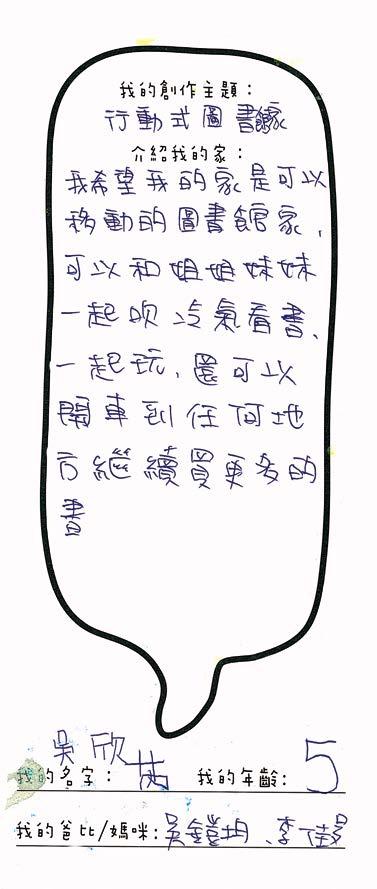 我的創作主題:
行動式圖書館家
介紹我的家:
我希望我的家是可以
移動的圖書館家,
可以和姐姐妹妹
一起吹冷氣看書、
一起玩,還可以
開車到任何地
方繼續買更多的
書
吳欣
我的名字: 我的年齡: 5
我的爸比/媽咪: 吳鎧均、李